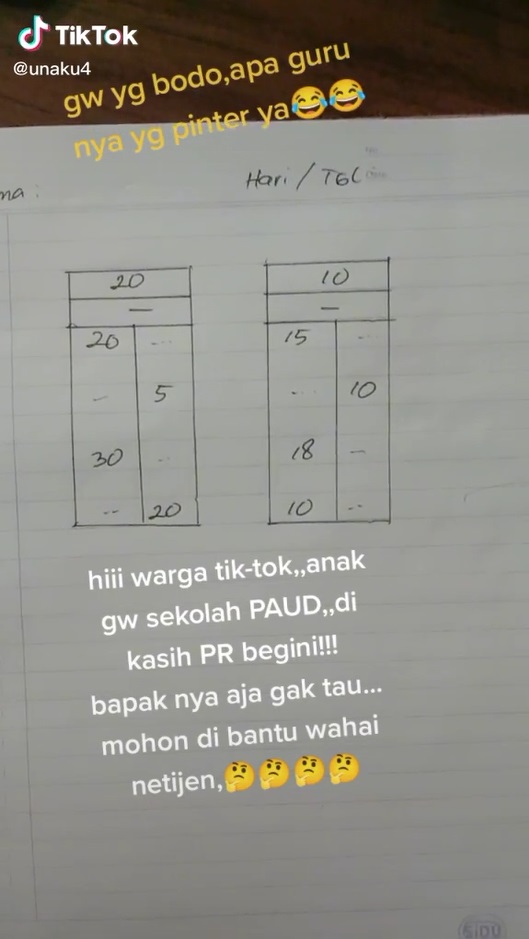 TikTok
@unaku4
gw yg bodo,apa guru
nya yg pinter ya😂😂
ma :
Hari / TGL
20
—
20 ...
- 5
30 ..
-- 20
10
—
15 ..
... 10
18 -
10 --
hiii warga tik-tok,,anak
gw sekolah PAUD,,di
kasih PR begini!!!
bapak nya aja gak tau...
mohon di bantu wahai
netijen,🤔🤔🤔🤔
SIDU